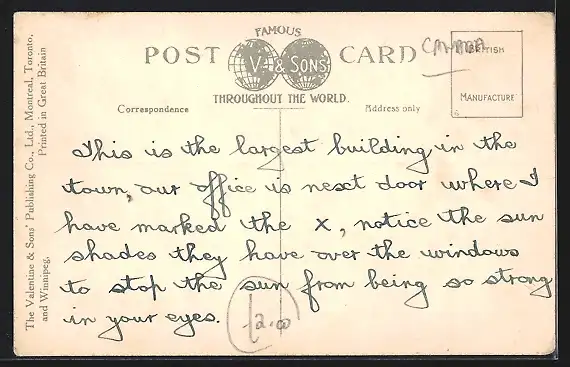 FAMOUS
POST CARD
V. & SONS
THROUGHOUT THE WORLD.
BRITISH
MANUFACTURE
CANADA
Correspondence
Address only
This is the largest building in the
town, our office is next door where I
have marked the x, notice the sun
shades they have over the windows
to stop the sun from being so strong
in your eyes.
12.00
The Valentine & Sons' Publishing Co., Ltd., Montreal, Toronto,
and Winnipeg,
Printed in Great Britain